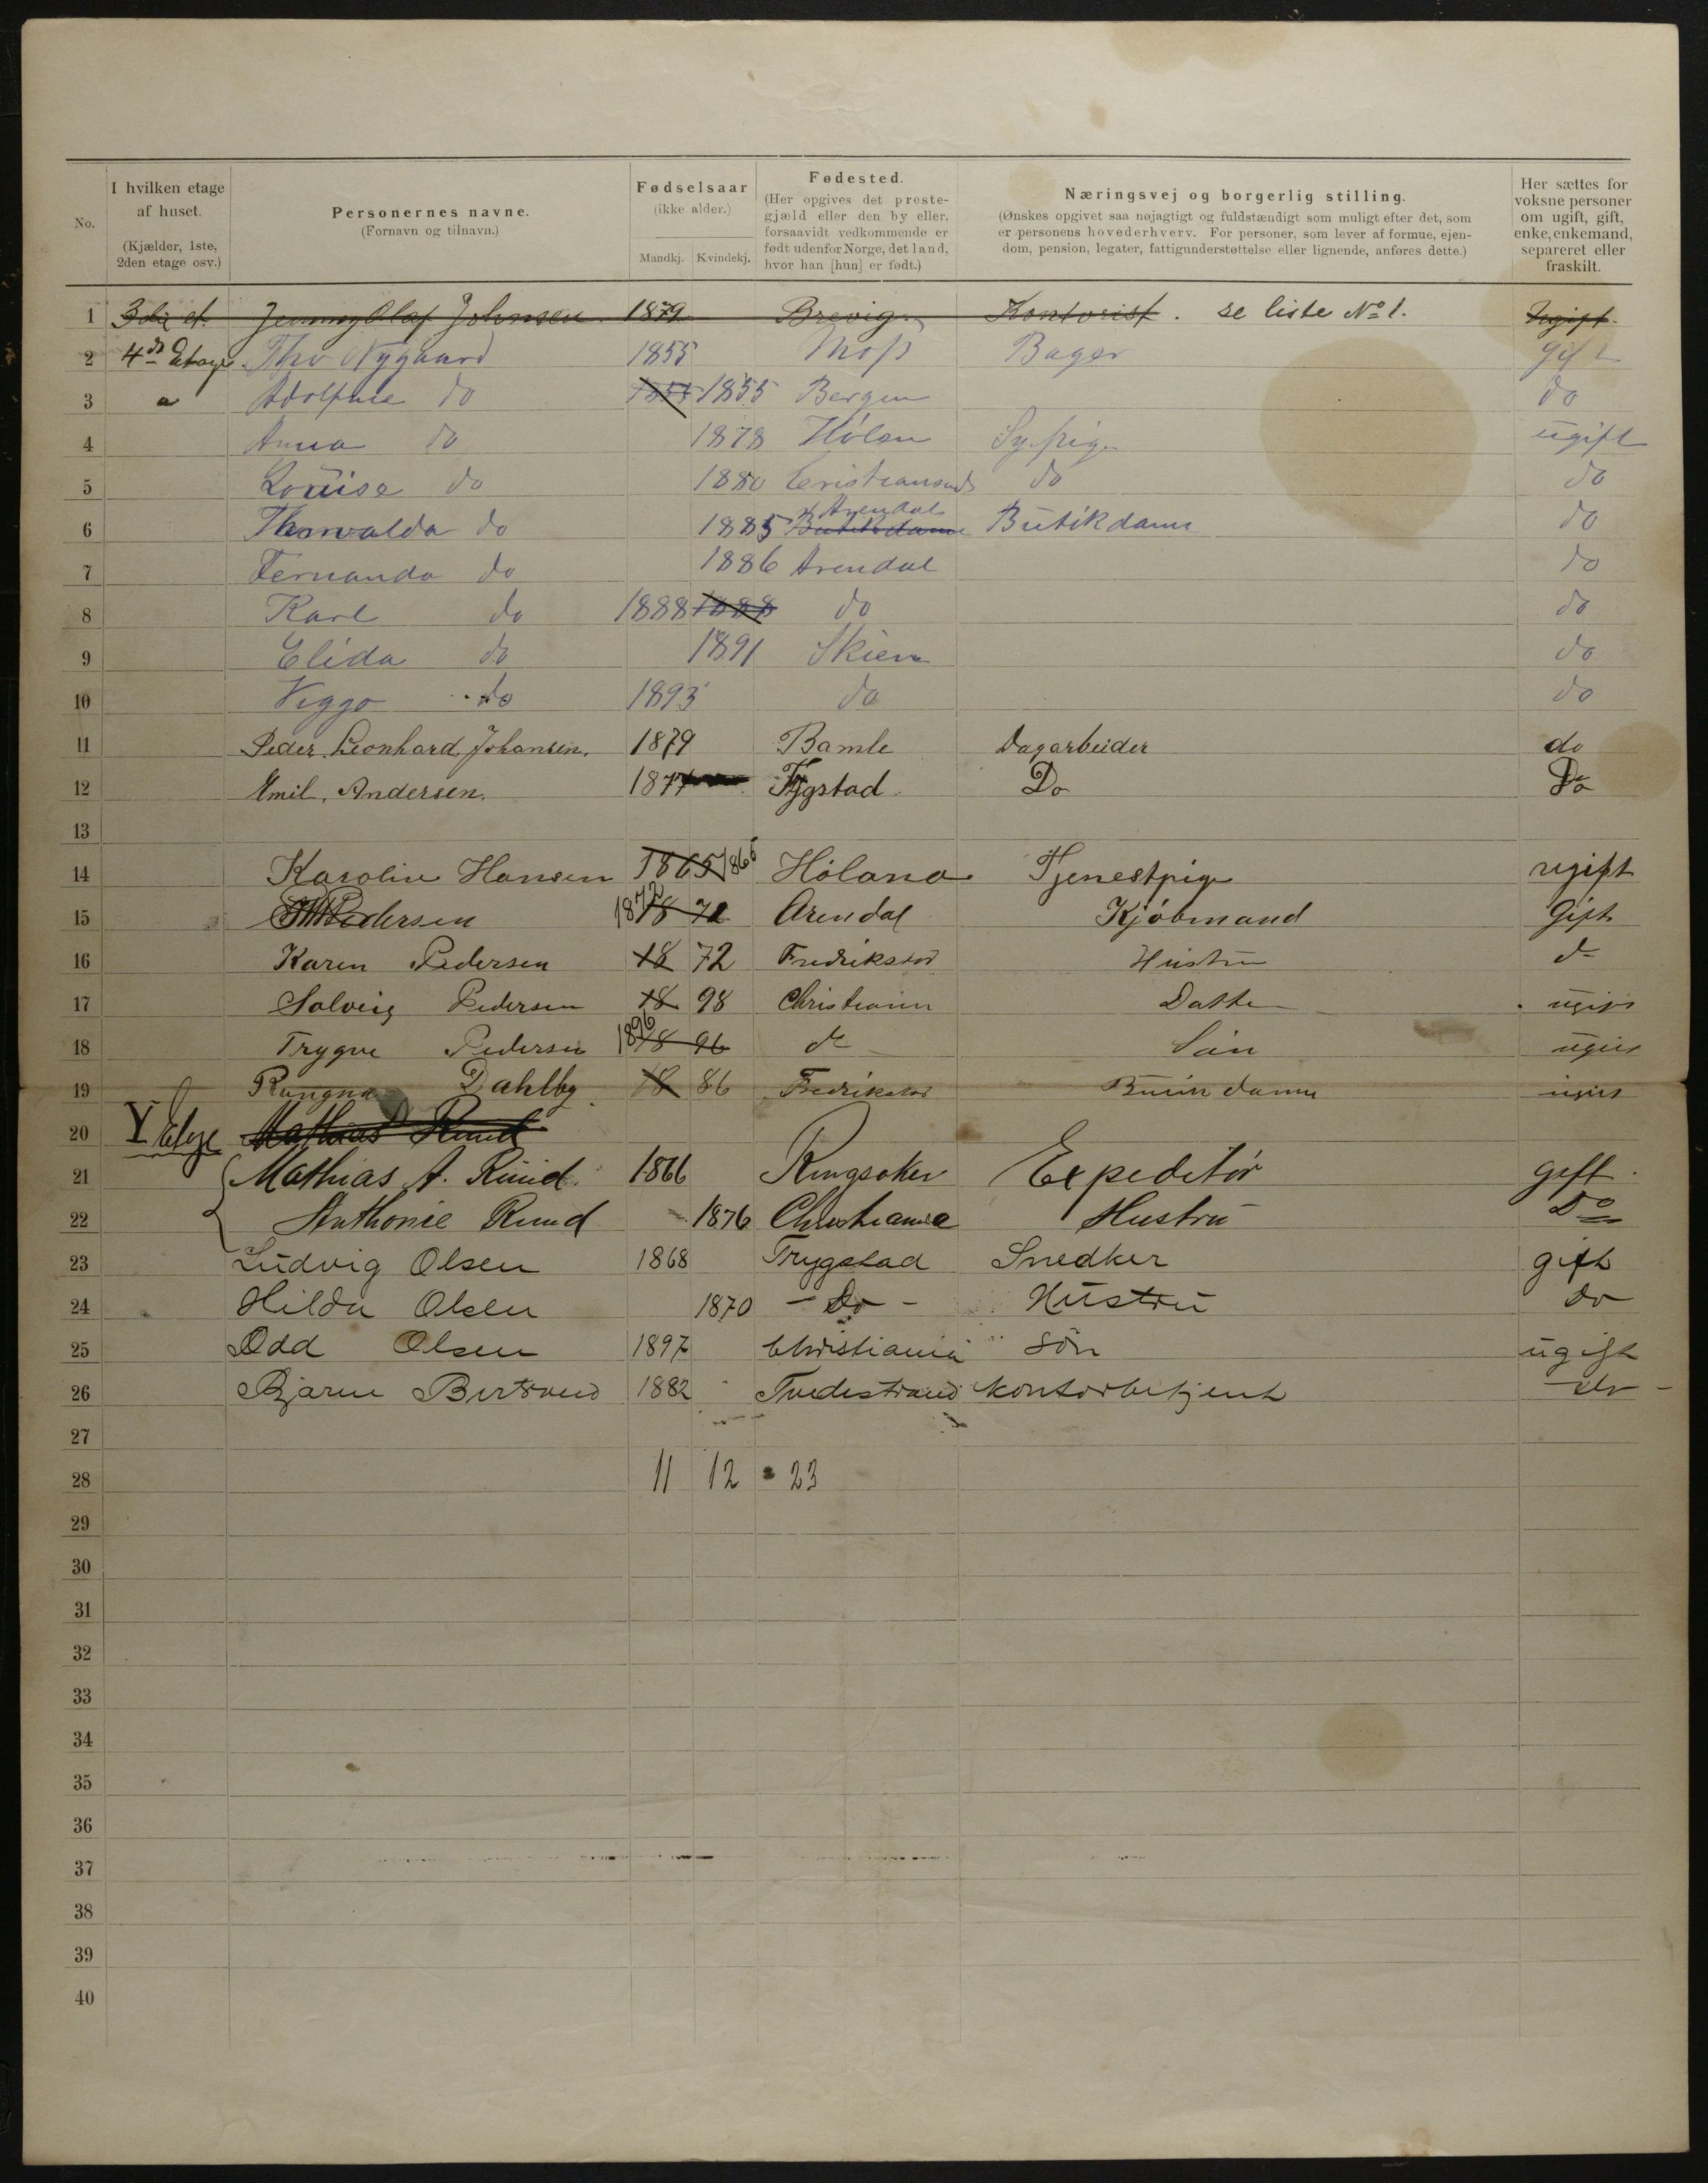 No.
I hvilken etage af huset.
(Kjælder, 1ste, 2den etage osv.)
Personernes navne.
(Fornavn og tilnavn.)
Fødselsaar
(ikke alder.)
Mandkj. Kvindekj.
Fødested.
(Her opgives det prestegjæld eller den by eller, forsaavidt vedkommende er født udenfor Norge, det land, hvor han [hun] er født.)
Næringsvej og borgerlig stilling.
(Ønskes opgivet saa nøjagtigt og fuldstændigt som muligt efter det, som er personens hovederhverv. For personer, som lever af formue, ejendom, pension, legater, fattigunderstøttelse eller lignende, anføres dette.)
Her sættes for voksne personer om ugift, gift, enke, enkemand, separeret eller fraskilt.
1 3die et. Jenny Olaf Johnsen 1879 Brevig Kontorist. se liste No 1. Ugift
2 4de Etage Tho Nygaard 1855 Moss Bager gift
3 Adolphie do 1855 1855 Bergen do
4 Anna do 1878 Hölen Sypige ugift
5 Louise do 1880 Cristiansund do do
6 Thorvalda do 1885 Butikdame Arendal Butikdame do
7 Fernanda do 1886 Arendal do
8 Karl do 1888 1888 do do
9 Elida do 1891 Skien do
10 Viggo do 1893 do do
11 Peder Leonhard Johansen. 1879 Bamle Dagarbeider do
12 Emil, Andersen. 1877 Tygstad Do Do
13
14 Karolin Hansen 1865 1865 Höland Tjenestpige ugift
15 Pedersen 1872 18 72 Arendal Kjöbmand Gift
16 Karen Pedersen 18 72 Fredrikstad Hustru do
17 Solveig Pedersen 18 98 Christiania Datter ugift
18 Trygve Pedersen 1896 18 96 do Sön ugift
19 Rangna Dahlby 18 86 Fredrikstad dame ugift
20 V Etage Mathias Ruud
21 Mathias A. Ruud. 1866 Ringsaker Expeditör gift.
22 Anthonie Ruud 1876 Christiania Hustru Do
23 Ludvig Olsen 1868 Trygstad Snedker gift
24 Hilda Olsen 1870 - Do - Hustru do
25 Odd Olsen 1897 Christiania Sön ugift
26 Bjarne Bertrand 1882 Tvedestrand kontorbetjent - do -
27
28 11 12 = 23
29
30
31
32
33
34
35
36
37
38
39
40